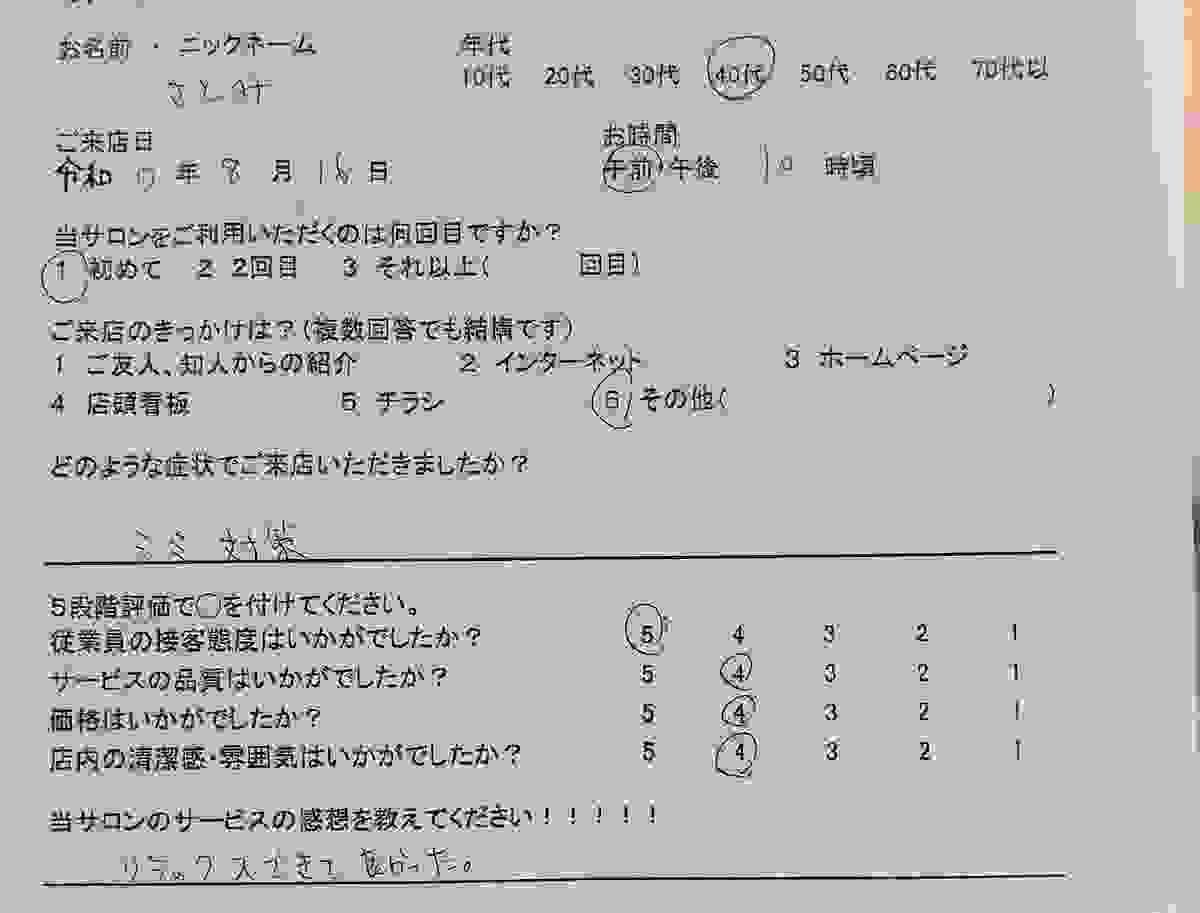 お名前 ・ ニックネーム 年代
10代 20代 30代 40代 50代 60代 70代以
ご来店日 お時間
令和 7 年 8 月 16 日 午前・午後 10 時頃
当サロンをご利用いただくのは何回目ですか?
1 初めて 2 2回目 3 それ以上( 回目)
ご来店のきっかけは?(複数回答でも結構です)
1 ご友人、知人からの紹介 2 インターネット 3 ホームページ
4 店頭看板 5 チラシ 6 その他( )
どのような症状でご来店いただきましたか?
シミ 対策
5段階評価で○を付けてください。
従業員の接客態度はいかがでしたか? 5 4 3 2 1
サービスの品質はいかがでしたか? 5 4 3 2 1
価格はいかがでしたか? 5 4 3 2 1
店内の清潔感・雰囲気はいかがでしたか? 5 4 3 2 1
当サロンのサービスの感想を教えてください!!!!!
リラックスできて良かった。